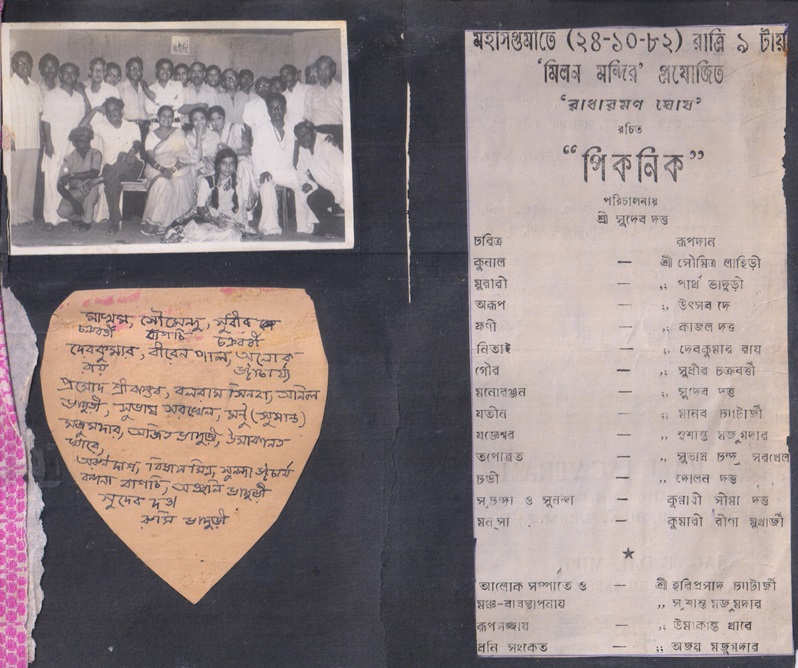 মাখম, সৌমেন্দু, সুবীর দে
চক্রবর্তী বাগচি চক্রবর্তী
দেবকুমার, বীরেন পাল, অলোক
রায় ভট্টাচার্য্য
প্রমোদ শ্রীবাস্তব, বলরাম সিনহা, অনিল
ভাদুড়ী, সুভাষ সরখেল, মন্টু (সুশান্ত)
মজুমদার, অজিত ভাদুড়ী, উমাকান্ত
খাবে,
অরুণ দাশ, বিমান মিত্র, সুনন্দা ভট্টাচার্য
বন্দনা বাগচি, অঞ্জলি ভাদুড়ী
সুদেব দত্ত
রুমি ভাদুড়ী
মহাসপ্তমীতে (২৪-১০-৮২) রাত্রি ৯ টায়
'মিলন মন্দির' প্রযোজিত
'রাধারমণ ঘোষ'
রচিত
“পিকনিক”
পরিচালনায়
শ্রী সুদেব দত্ত
চরিত্র রূপদান
কুনাল — শ্রী সৌমিত্র লাহিড়ী
মুরারী — ,, পার্থ ভাদুড়ী
অরূপ — ,, উৎসব দে
ফণী — ,, কাজল দত্ত
নিতাই — ,, দেবকুমার রায়
গৌর — ,, সুধীর চক্রবর্ত্তী
মনোরঞ্জন — ,, সুদেব দত্ত
যতীন — ,, মানব চ্যাটার্জী
যজ্ঞেশ্বর — ,, সুশান্ত মজুমদার
তপোব্রত — ,, সুভাষ চন্দ্র সরখেল
চণ্ডী — ,, দোলন দত্ত
সুছন্দা ও সুনন্দা — কুমারী সীমা দত্ত
মনসা — কুমারী রীণা মুখার্জী
★
আলোক সম্পাতে ও — শ্রী হরিপ্রসাদ চ্যাটার্জী
মঞ্চ-ব্যবস্থাপনায় ,, সুশান্ত মজুমদার
রূপসজ্জায় — ,, উমাকান্ত খাবে
ধ্বনি সংকেত — ,, অজয় মজুমদার